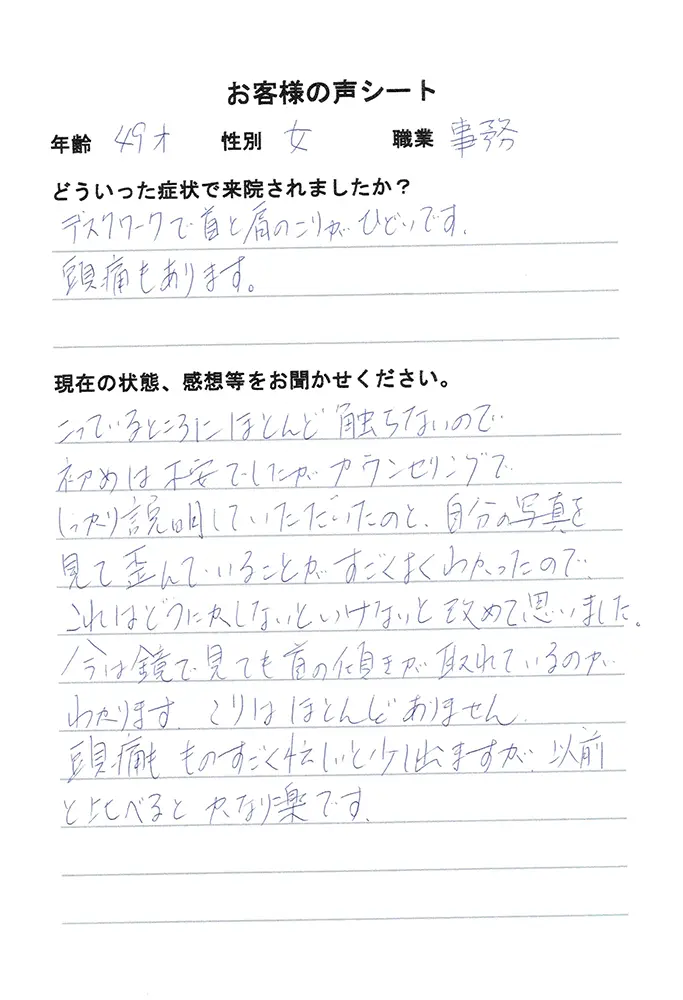 お客様の声シート
年齢 49才 性別 女 職業 事務
どういった症状で来院されましたか？
デスクワークで首と肩のこりがひどいです。
頭痛もあります。
現在の状態、感想等をお聞かせください。
こっているところにほとんど触らないので
初めは不安でしたがカウンセリングで
しっかり説明していただいたのと、自分の写真を
見て歪んでいることがすごくよくわかったので、
これはどうにかしないといけないと改めて思いました。
今は鏡で見ても首の傾きが取れているのが
わかります。こりはほとんどありません。
頭痛も ものすごく忙しいと少し出ますが、以前
と比べると かなり楽です。